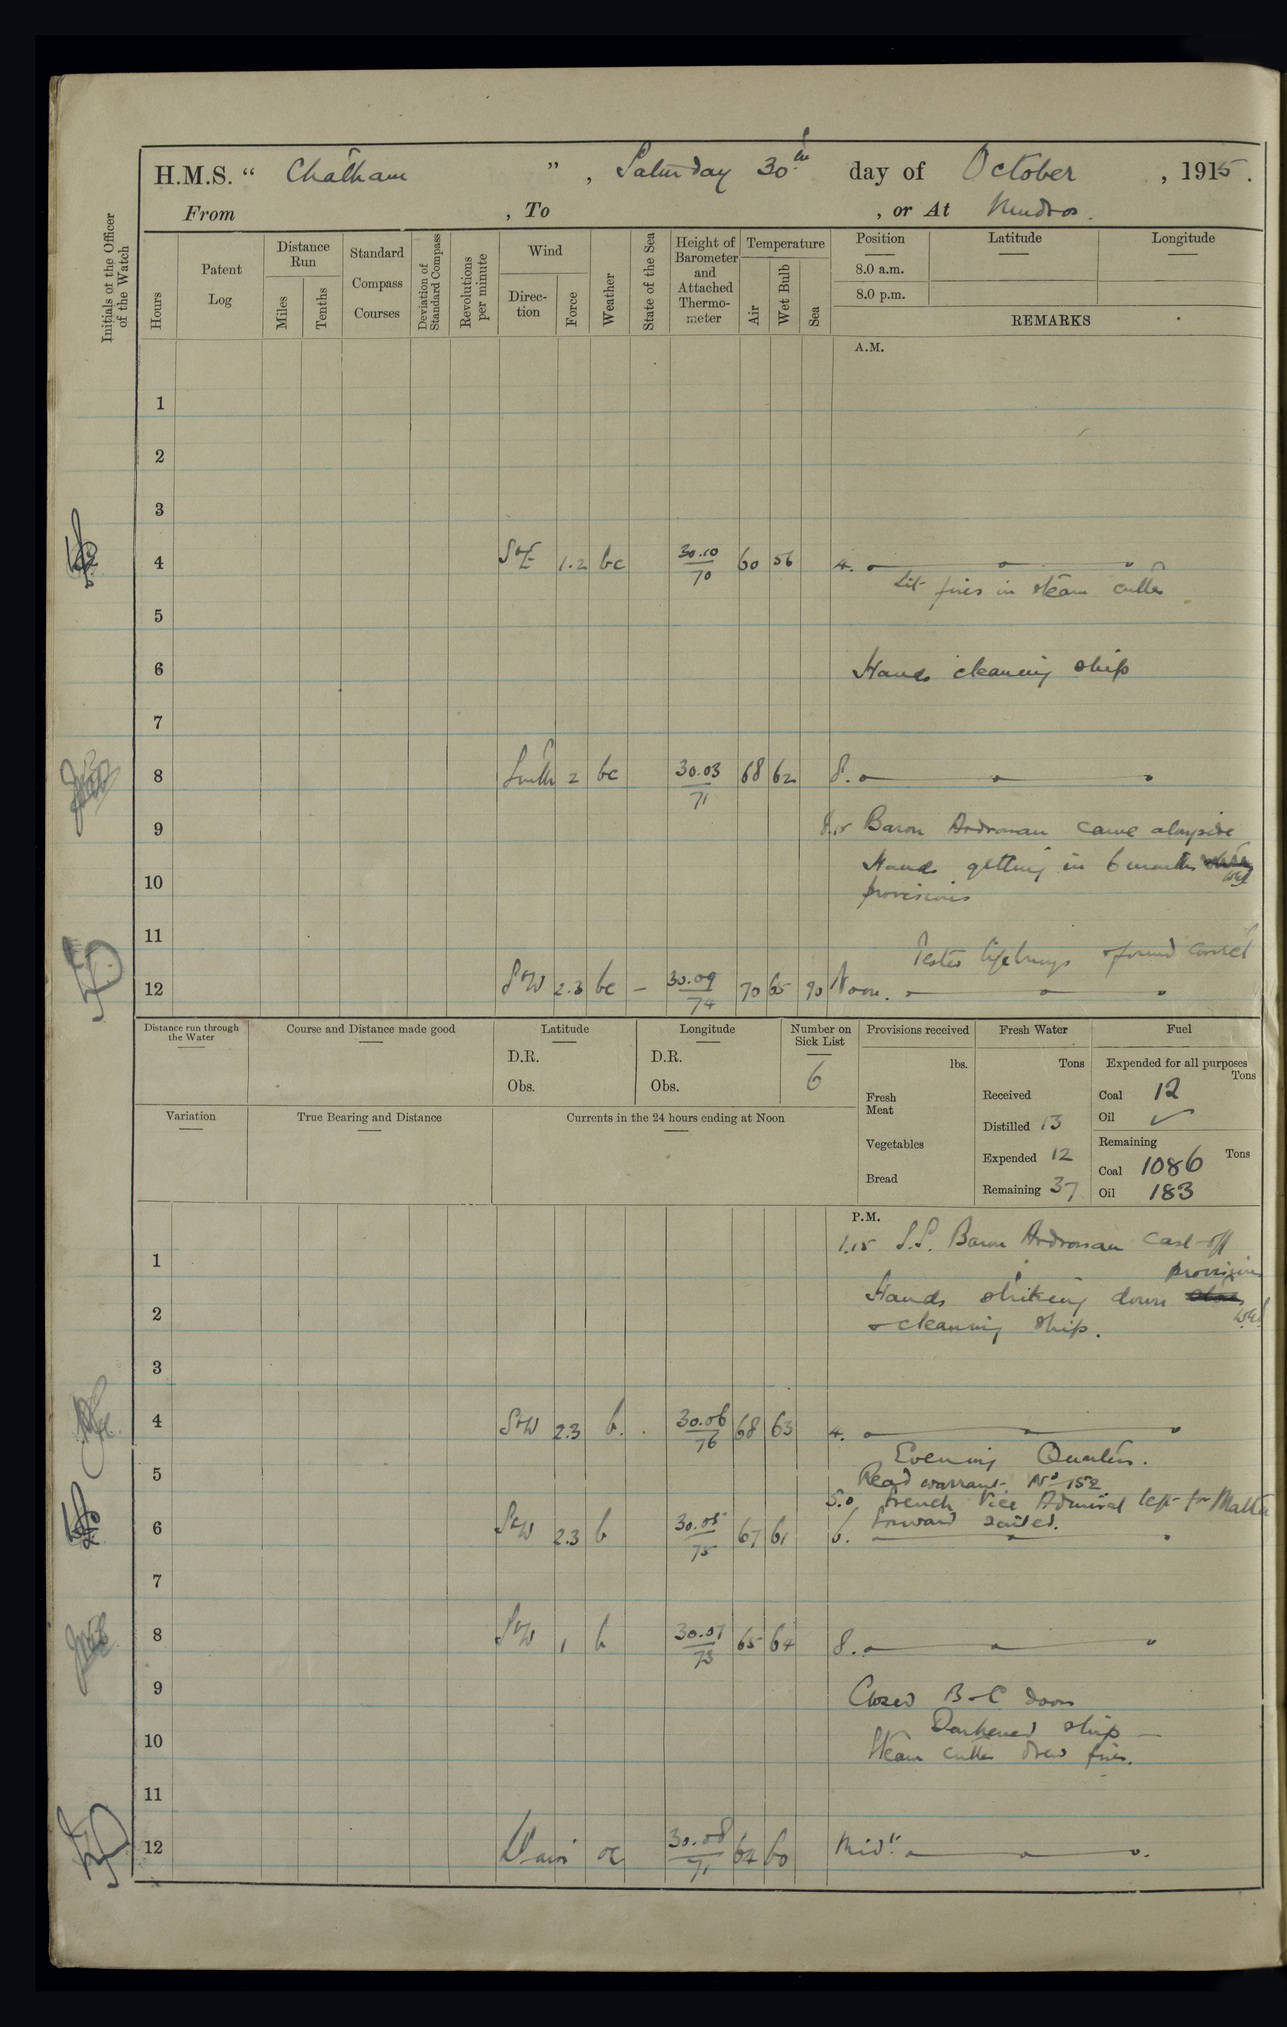 H.M.S. “ Chatham ” , Saturday 30th day of October , 1915.
From , To , or At Mudros.
Initials of the Officer of the Watch
Hours
Patent Log
Distance Run
Miles
Tenths
Standard Compass Courses
Deviation of Standard Compass
Revolutions per minute
Wind
Direc-tion
Force
Weather
State of the Sea
Height of Barometer and Attached Thermo-meter
Temperature
Air
Wet Bulb
Sea
Position Latitude Longitude
8.0 a.m.
8.0 p.m.
REMARKS
A.M.
1
2
3
4 S+E 1.2 bc 30.10/70 60 56 4. " " "
Lit fires in steam cutter
5
6 Hands cleaning ship
7
8 South 2 bc 30.03/71 68 62 8. " " "
9 8.15 Baron Ardrossan came alongside
Hands getting in 6 months
10 provisions
11
Tested lifebuoys & found correct
12 S+W 2.3 bc – 30.09/74 70 65 70 Noon. " " "
Distance run through the Water
Course and Distance made good
Latitude
D.R.
Obs.
Longitude
D.R.
Obs.
Number on Sick List
6
Provisions received
lbs.
Fresh Meat
Vegetables
Bread
Fresh Water
Tons
Received
Distilled 13
Expended 12
Remaining 37
Fuel
Expended for all purposes
Tons
Coal 12
Oil ✓
Remaining
Tons
Coal 1086
Oil 183
Variation
True Bearing and Distance
Currents in the 24 hours ending at Noon
P.M.
1.15 S.S. Baron Ardrossan cast off
1
provisions
Hands striking down
2 & cleaning ship.
3
4 S+W 2.3 b. 30.06/76 68 63 4. " " "
Evening Quarters.
5 Read warrant No 152
5.0 French Vice Admiral left for Malta
sailed.
6 S+W 2.3 b 30.05/75 67 61 6. " " "
7
8 S+W 1 b 30.07/73 65 64 8. " " "
9 Closed B & C doors
Darkened ship
10 Steam cutter drew fires.
11
12 oc 30.08/71 64 60 Midt. " " "